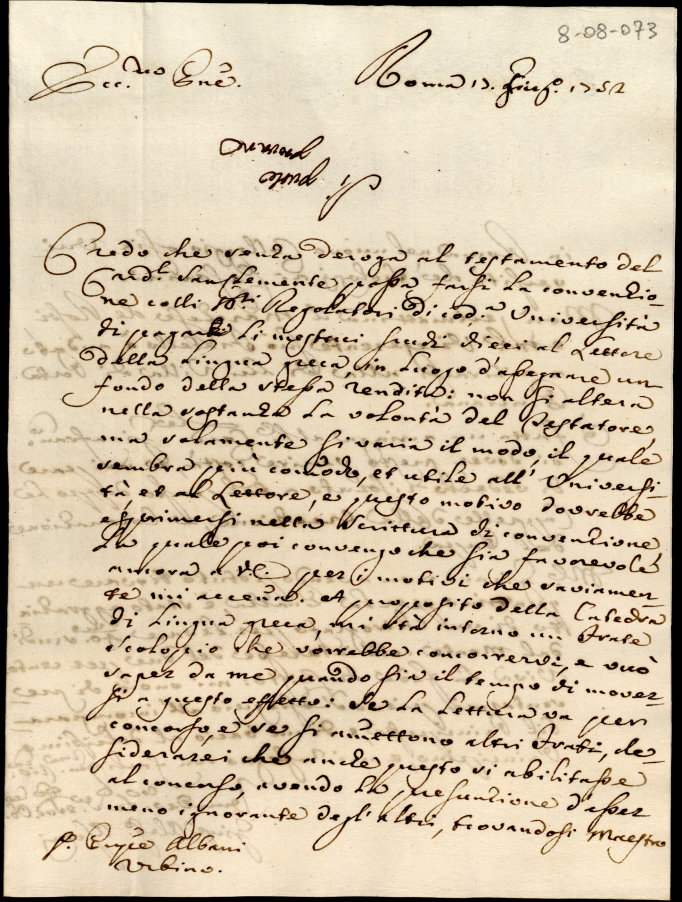 8-08-073
Ecc.mo Sig.re Roma 17. Giug.o 1752
Credo che senza deroga al testamento del
Card.l San Clemente possa farsi la convenzio-
ne colli Sig.ri Regolatori di cod.a Università
di pagarsi li mestrui scudi dieci al Lettore
della lingua greca, in luogo d'assegnare un
fondo della stessa rendita: non si altera
nella sostanza la volontà del Testatore,
ma solamente si varia il modo, il quale
sembra più comodo, et utile all'Universi-
tà et al Lettore, e questo motivo dovrebbe
esprimersi nella scrittura di convenzione,
la quale poi convengo che sia favorevole
ancora a V.E. per i motivi che saviamen-
te mi accenna. A proposito della Catedra
di lingua greca, mi stà intorno un Frate
Scolopio che vorrebbe concorrervi, e vuò
saper da me quando sia il tempo di mover-
si a questo effetto: se la Lettura va per
concorso, e se si amettono altri Frati, de-
siderarei che anche questo si abilitasse
al concorso, avendo la presunzione d'esser
meno ignorante degl'altri, trovandosi Maestro
Albani
Urbino.